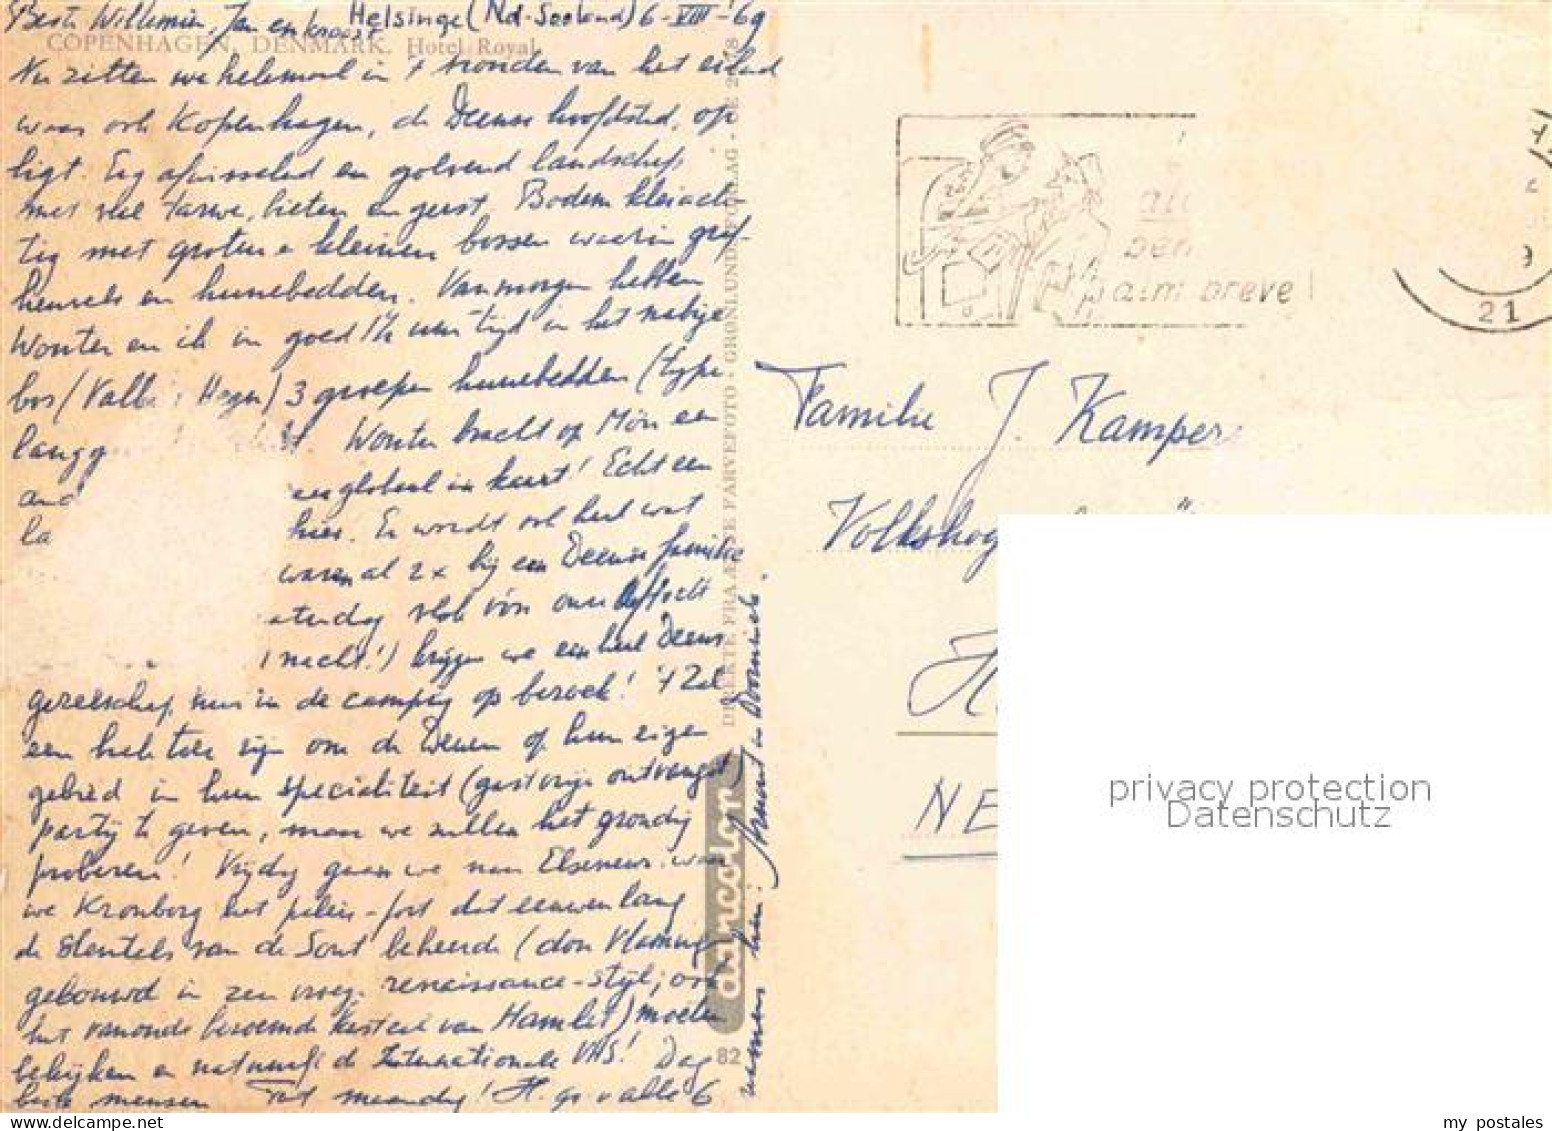 Beste Willemien, Jan en kroost Helsinge (Nd-Seeland) 6-VIII-'69
COPENHAGEN, DENMARK. Hotel Royal.
Nu zitten we helemaal in 't noorden van het eiland
waar ook Kopenhagen, de Deense hoofdstad, op
ligt. Erg afwisselend en golvend landschap
met veel tarwe, bieten en gerst. Bodem kleiach-
tig met grotere kleinen bossen waarin graf-
heuvels en hunebedden. Vanmorgen hebben
Wouter en ik in goed 1½ uur tijd in het nabije
bos (Valby Hegn) 3 groepen hunebedden (type
langg
Wouter bracht op Mön een
and
en globaal in kaart! Echt een
la
hier. Er wordt ook heel wat
waren al 2x bij een Deense familie
aterdag vlak vóór onze
nacht!) krijgen we een heel Deens
gezelschap hier in de camping op bezoek! 't Zal
een hele toer zijn om de Denen op hun eigen
gebied in hun specialiteit (gastvrije ontvangst
partij te geven, maar we zullen het grondig
proberen! Vrijdag gaan we naar Elseneur waar
we Kronborg het paleis-fort dat eeuwenlang
de sleutels van de Sont beheerde (door Vlaming
gebouwd in zeer vroege renaissance-stijl; ook
het vanouds beroemde kasteel van Hamlet) moeten
bekijken en natuurlijk de Internationale VHS! Dag
beste mensen Tot maandag! H. gr. v alle 6
DIREKTE FRA ÆGTE FARVEFOTO · GRØNLUNDS FORLAG
dancolor
82
alm breve!
21
Familie J. Kamper
Volkshog
H
NE
privacy protection
Datenschutz
my postales